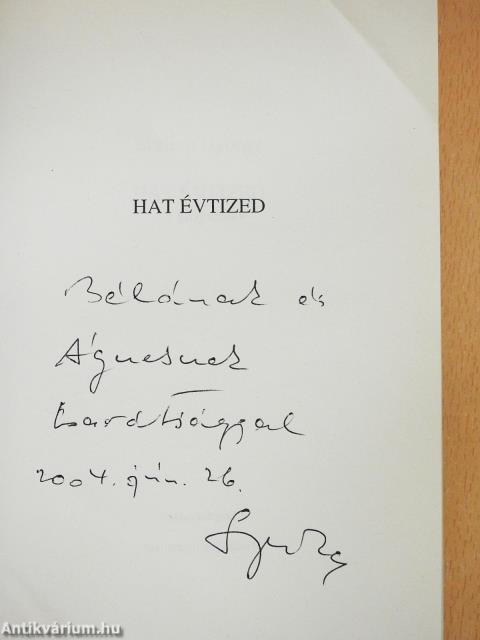 HAT ÉVTIZED
Bélának és
Ágnesnek
barátsággal
2004. jún. 26.
Antikvárium.hu